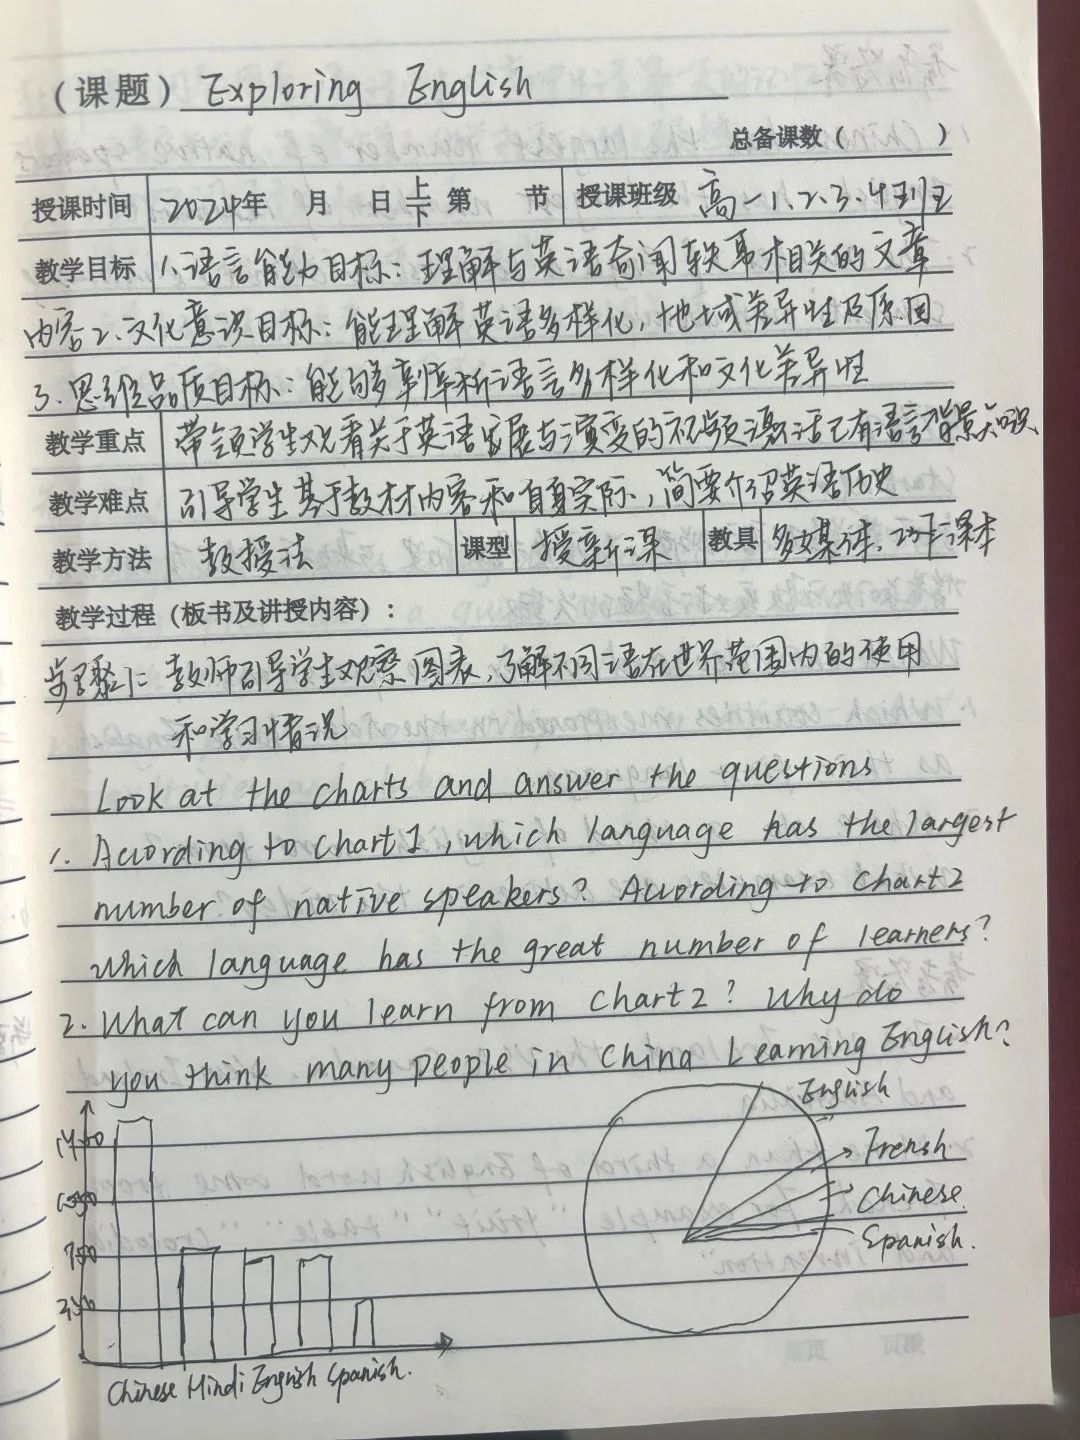 （课题） Exploring English
总备课数（ ）
授课时间 2024年 月 日 上下 第 节 授课班级 高一1、2、3、4班
教学目标 1、语言能力目标：理解与英语奇闻轶事相关的文章
内容 2、文化意识目标：能理解英语多样化，地域差异性及原因
3、思维品质目标：能够辨析语言多样化和文化差异性
教学重点 带领学生观看关于英语发展与演变的视频激活已有语言背景知识
教学难点 引导学生基于教材内容和自身实际，简要介绍英语历史
教学方法 教授法 课型 授新课 教具 多媒体、课本
教学过程（板书及讲授内容）：
步骤1：教师引导学生观察图表，了解不同语在世界范围内的使用
和学习情况
Look at the charts and answer the questions
1. Acording to chart1, which language has the largest
number of native speakers? Acording to chart2
which language has the great number of learners?
2. What can you learn from chart2? Why do
you think many people in China Learning English?
English
Frensh
Chinese
Spanish.
750
Chinese Hindi English Spanish.